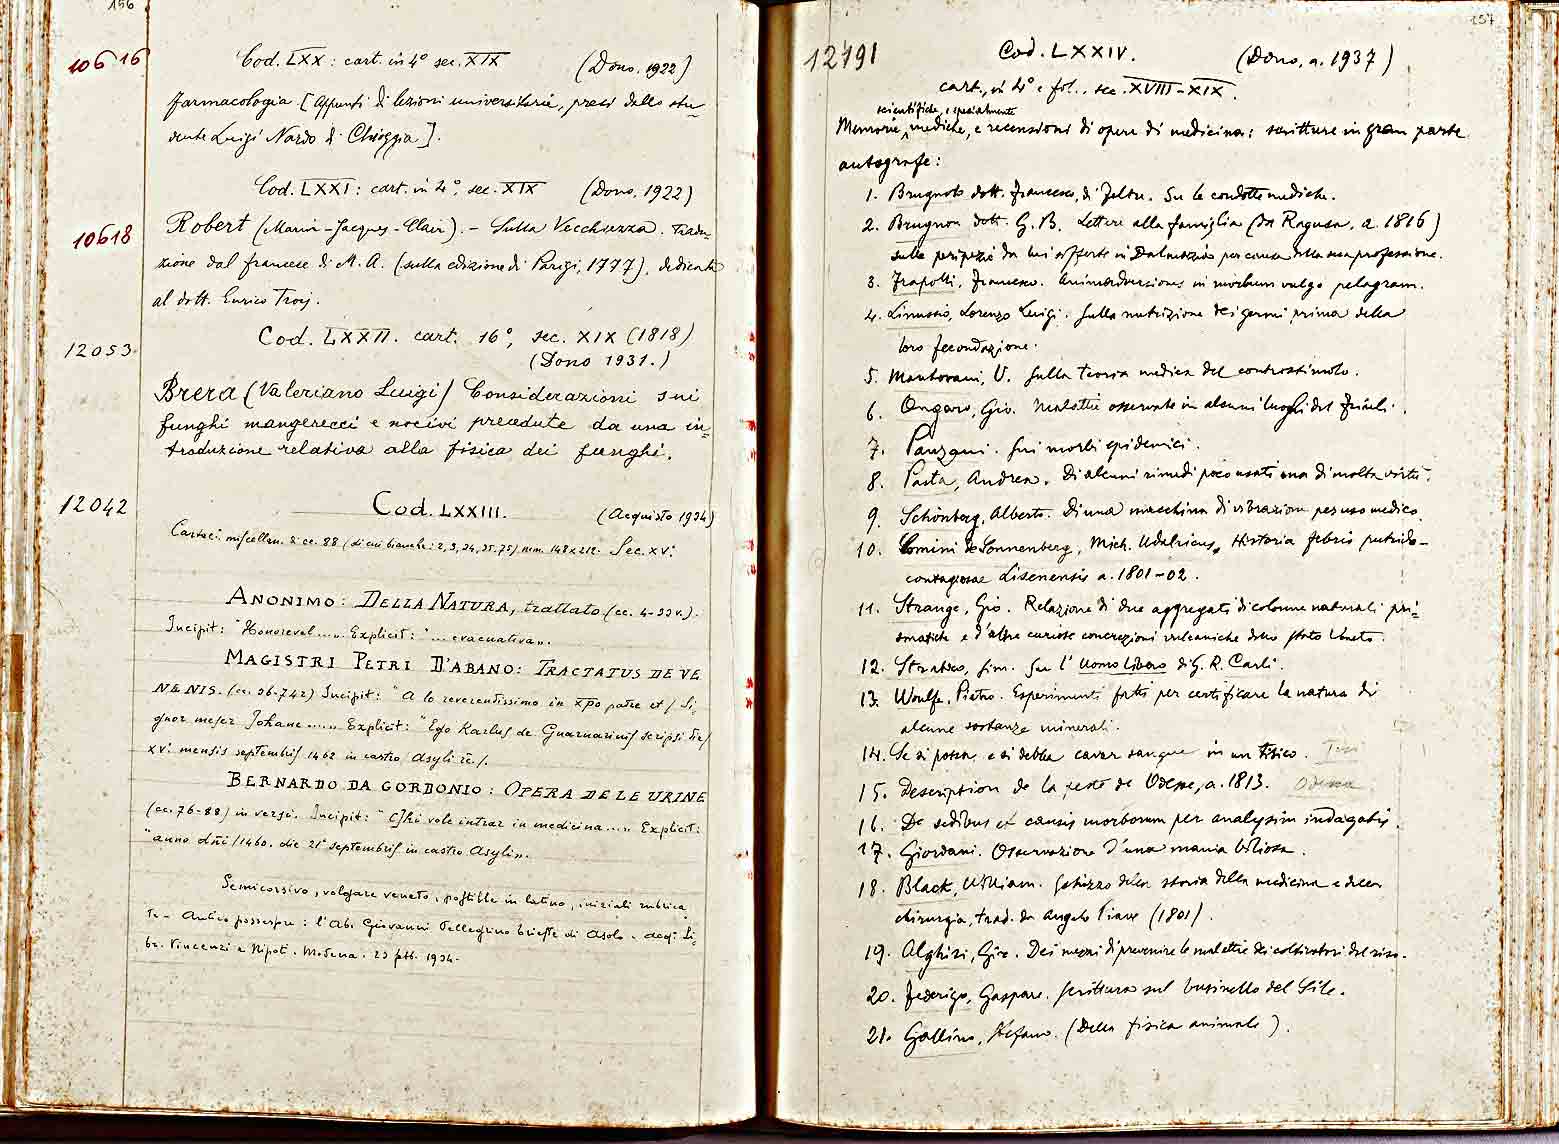 156
10616
Cod. LXX: cart. in 4° sec. XIX (Dono, 1922)
Farmacologia. [Appunti di lezioni universitarie, presi dallo stu-
dente Luigi Nardo di Chioggia].
Cod. LXXI: cart. in 4°, sec. XIX (Dono, 1922)
10618
Robert (Marin-Jacques-Clair). - Sulla Vecchiezza. Tradu-
zione dal francese di M. A. (sulla edizione di Parigi, 1777), dedicata
al dott. Enrico Trois.
Cod. LXXII. cart. 16°, sec. XIX (1818)
12053
(Dono 1931.)
Brera (Valeriano Luigi) Considerazioni sui
funghi mangerecci e nocivi precedute da una in-
troduzione relativa alla fisica dei funghi.
12042
Cod. LXXIII. (Acquisto 1934)
Cartac. miscellan. di cc. 88 (di cui bianche: 2, 3, 34, 35, 75) mm. 148x212. Sec. XV:
ANONIMO: DELLA NATURA, trattato (cc. 4-33v.).
Incipit: "Honorevel....„ Explicit: "... evacuativa„.
MAGISTRI PETRI D'ABANO: TRACTATUS DE VE
NENIS. (cc. 36-742) Incipit: "A lo reverendissimo in Xpo patre et / Si-
gnor meser Johane.....„ Explicit: "Ego Karlus de Guarnarinis scripsi die/
XV: mensis septembris 1462 in castro Asyli &c./.
BERNARDO DA GORDONIO: OPERA DE LE URINE
(cc. 76-88) in versi. Incipit: "C]hi vole intrar in medicina....„ Explicit:
"anno dñi/1460. die 21° septembris in castro Asyli„.
Semicorsivo, volgare veneto, postille in latino, iniziali rubrica
te - Antico possessore: l'Ab. Giovanni Pellegrino Trieste di Asolo - acq: Li-
br. Vincenzi e Nipoti. Modena. 23 febb. 1934.
157
12791
Cod. LXXIV. (Dono, a. 1937)
cart., in 4° e fol., sec. XVIII-XIX.
scientifiche, e specialmente
Memorie, mediche, e recensioni di opere di medicina: scritture in gran parte
autografe:
1. Brugnolo dott. Francesco, di Feltre. Su le condotte mediche.
2. Brugnon dott. G. B. Lettere alla famiglia (da Ragusa, a. 1816)
sulle peripezie da lui sofferte in Dalmazia per causa della sua professione.
3. Frapolli, Francesco. Animadversiones in morbum vulgo pelagram.
4. Linussio, Lorenzo Luigi. Sulla nutrizione dei germi prima della
loro fecondazione.
5. Mantovani, V. Sulla teoria medica del controstimolo.
6. Ongaro, Gio. Malattie osservate in alcuni luoghi del Friuli.
7. Panzani. Sui morbi epidemici.
8. Pasta, Andrea. Di alcuni rimedi poco usati ma di molta virtù.
9. Schönberg, Alberto. Di una macchina di vibrazioni per uso medico.
10. Comini de Sonnenberg, Mich. Udalricus. Historia febris putrido-
contagiosae Lisenensis a. 1801-02.
11. Strange, Gio. Relazione di due aggregati di colonne naturali pri-
smatiche e d'altre curiose concrezioni vulcaniche dello Stato Veneto.
12. Stratico, Sim. Su l'Uomo libero di G. R. Carli.
13. Woulfe, Pietro. Esperimenti fatti per certificare la natura di
alcune sostanze minerali.
14. Se si possa e si debba cavar sangue in un Tisico. Tisi
15. Description de la peste de Odesse, a. 1813. Odessa
16. De sedibus et causis morborum per analysim indagatis.
17. Giordani. Osservazione d'una mania biliosa.
18. Black, William. Schizzo della storia della medicina e della
chirurgia, trad. da Angelo Piave (1801).
19. Alghisi, Gio. Dei mezzi di prevenire le malattie dei coltivatori del riso.
20. Federigo, Gaspare. Scrittura sul businello del Sile.
21. Gallino, Stefano. (Della fisica animale).